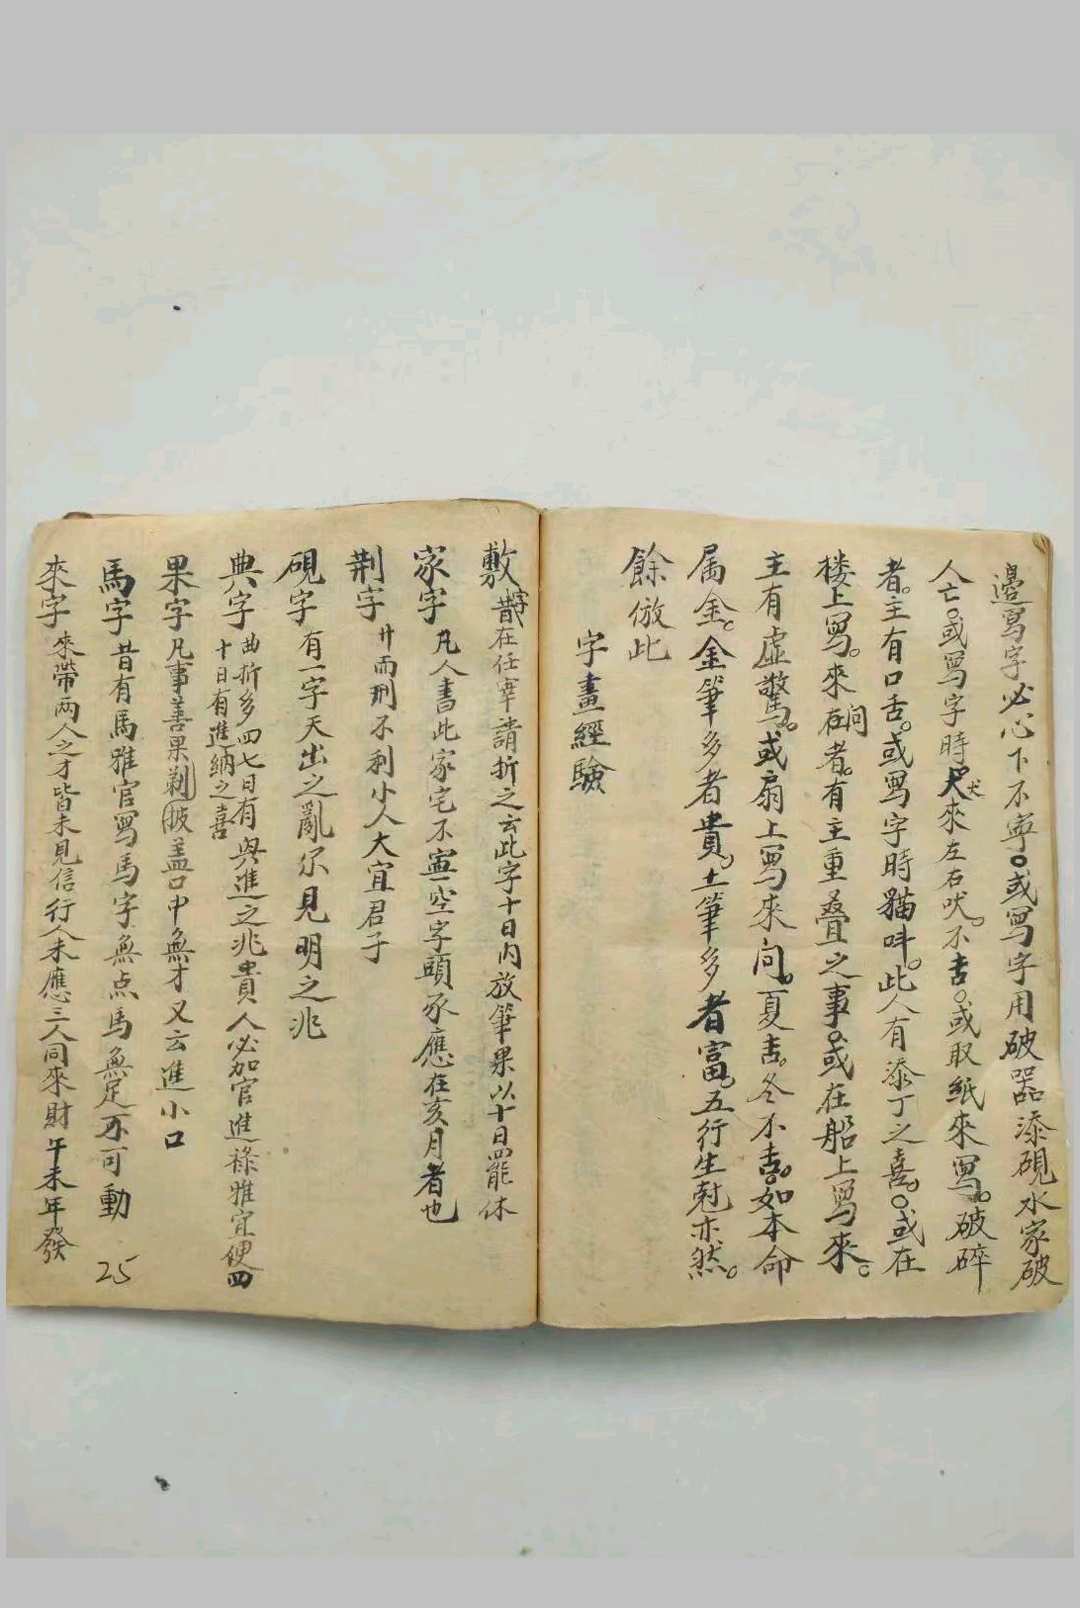 邉寫字必心下不寧。或寫字用破器添硯水家破
人亡。或寫字時犬來左右吠。不吉。或取紙來寫。破碎
者。主有口舌。或寫字時貓叫。此人有添丁之喜。。或在
楼上寫。來問者。有主重叠之事。或在船上寫來。
主有虛驚。或扇上寫來問。夏吉。冬不吉。如本命
属金。金筆多者貴。土筆多者富。五行生尅亦然。
餘倣此
字畫經驗
敷字 昔在任宰請折之云此字十日內放筆果以十日罷休
家字 凡人書此家宅不寧空字頭豕應在亥月者也
荆字 廾而刑不利小人大宜君子
硯字 有一字天出之亂尔見明之兆
典字 曲折多四七日有與進之兆貴人必加官進祿雅宜便四
十日有進納之喜
果字 凡事善果剃披盖口中無才又云進小口
馬字 昔有馬雅官寫馬字無点馬無足不可動
來字 來帶两人之才皆未見信行人未應三人同來財午未年發
25